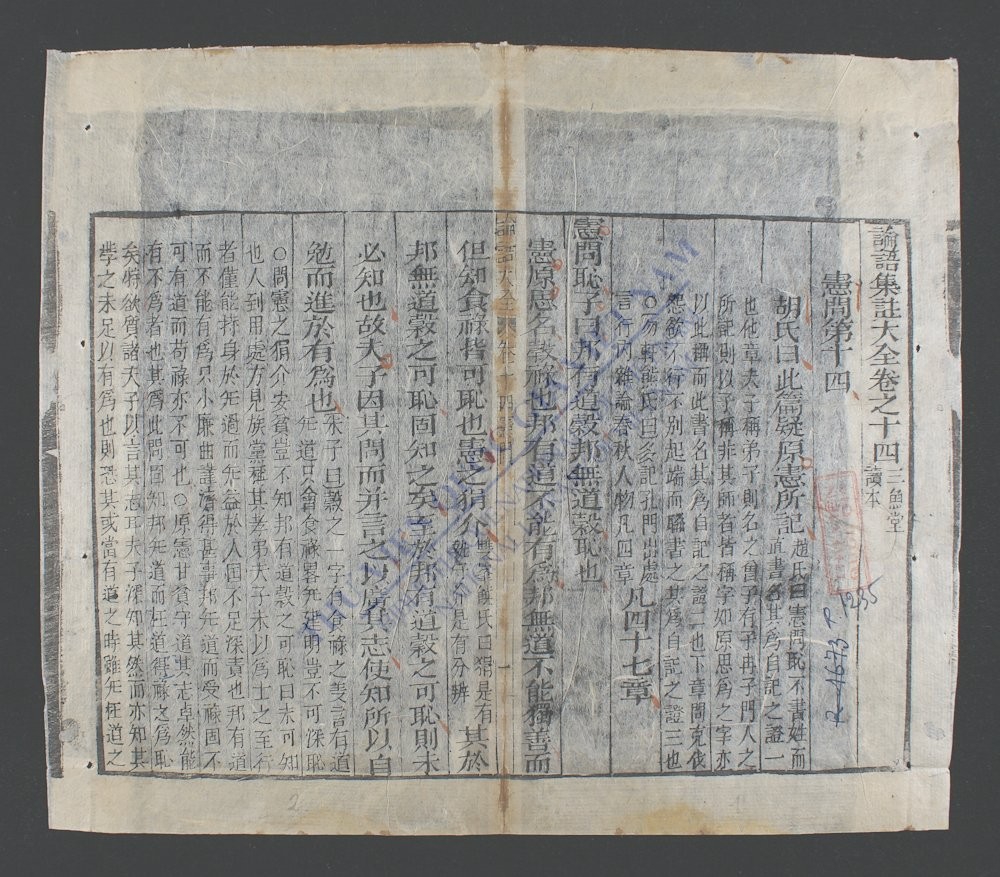 論語集註大全卷之十四 三魚堂讀本
憲問第十四
胡氏曰此篇疑原憲所記 趙氏曰憲問恥不書姓而直書名其為自記之證一
也他章夫子稱弟子則名之曾子有子冉子門人之
所記則以子稱非其師者皆稱字如原思為之字亦
以此攝而此書名其為自記之證二也下章問克伐
怨欲不行不别起端而聯書之其為自記之證三也
○勿軒熊氏曰多記孔門出處
言行間雜論春秋人物凡四章 凡四十七章
憲問恥子曰邦有道榖邦無道榖恥也
憲原思名榖祿也邦有道不能有為邦無道不能獨善而
論語大全 卷十四 憲問 一
但知食祿皆可恥也憲之狷介 雙峯饒氏曰狷是有執守介是有分辨 其於
邦無道榖之可恥固知之矣至於邦有道榖之可恥則未
必知也故夫子因其問而并言之以廣其志使知所以自
勉而進於有為也 朱子曰榖之一字有食祿之義言有道无道只會食祿畧无建明豈不可深恥
○問憲之狷介安貧豈不知邦有道榖之可恥曰未可知
也人到用處方見族黨稱其孝弟夫子未以為士之至行
者僅能持身於无過而无益於人固不足深責也邦有道
而不能有為只小廉曲謹濟得甚事邦无道而受祿固不
可有道而苟祿亦不可也○原憲甘貧守道其志卓然能
有不為者也其為此問固知邦无道而枉道得祿之為恥
矣特欲質諸夫子以言其志耳夫子深知其然而亦知其
學之未足以有為也則恐其或當有道之時雖无枉道之
R.1673
1235
THƯ VIỆN QUỐC GIA VIỆT NAM
NATIONAL LIBRARY OF VIETNAM
1
2